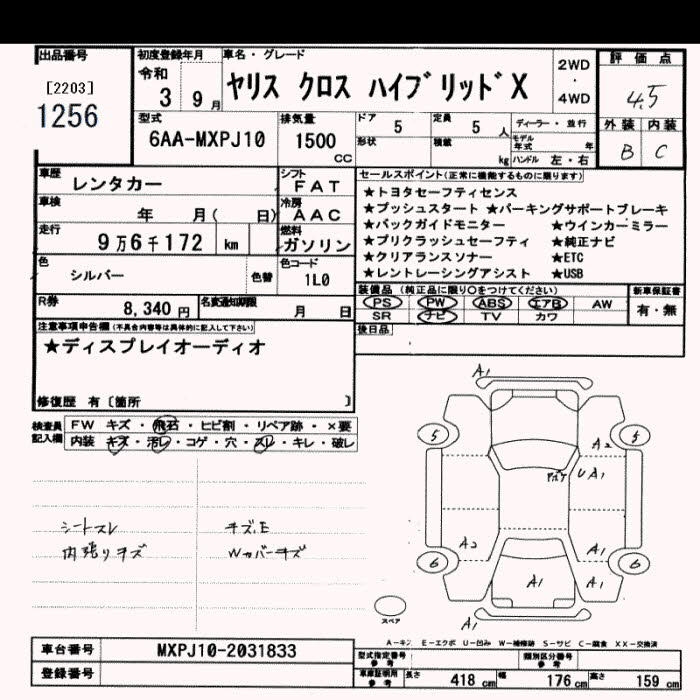 出品番号
[2203]
1256
初度登録年月
令和
3 9 月
車名・グレード
ヤリス クロス ハイブリッドX
2WD
・
4WD
評価点
4.5
外装 内装
B C
型式
6AA-MXPJ10
排気量
1500
CC
ドア
5
形状
定員
5 人
積載
kg
ディーラー・並行
モデル年式 年
ハンドル 左・右
車歴
レンタカー
車検
年 月( 日)
走行
9万6千172 km
色
シルバー
色替
シフト
FAT
冷房
AAC
燃料
ガソリン
色コード
1L0
R券
8,340 円
名変通知期限
月 日
セールスポイント(正常に機能するものに限ります)
★トヨタセーフティセンス
★プッシュスタート ★パーキングサポートブレーキ
★バックガイドモニター ★ウインカーミラー
★プリクラッシュセーフティ ★純正ナビ
★クリアランスソナー ★ETC
★レントレーシングアシスト ★USB
装備品(純正品に限り○をつけてください)
PS PW ABS エアB AW
SR ナビ TV カワ
新車保証書
有・無
後日品
注意事項申告欄(不具合内容等は具体的に記入して下さい)
★ディスプレイオーディオ
修復歴 有〔箇所 〕
検査員記入欄
FW キズ・飛石・ヒビ割・リペア跡・×要
内装 キズ・汚レ・コゲ・穴・スレ・キレ・破レ
シートスレ
内張りキズ
キズE
Wカバーキズ
A1
5
5
A2
U A1
A2
6
6
A1
A1
A1
A1
スペア
A-キズ E-エクボ U-凹み W-補修跡 S-サビ C-腐食 XX-交換済
車台番号
MXPJ10-2031833
登録番号
型式指定番号
参考
類別区分番号
参考
車庫証明用
参考
長さ
418 cm
幅
176 cm
高さ
159 cm